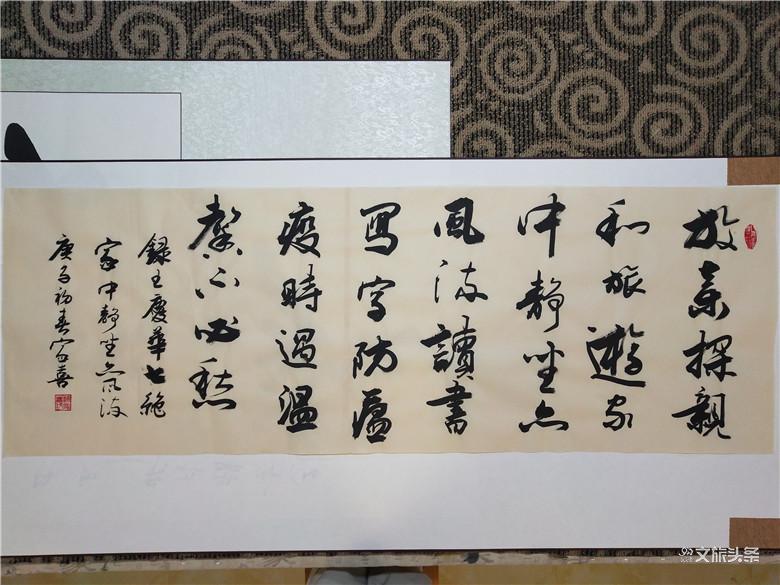 放棄探親
和旅遊家
中靜坐亦
風流讀書
寫字防瘟
疫時過溫
馨不必愁
錄王慶華七絕
家中靜坐亦風流
庚子初春
文旅头条